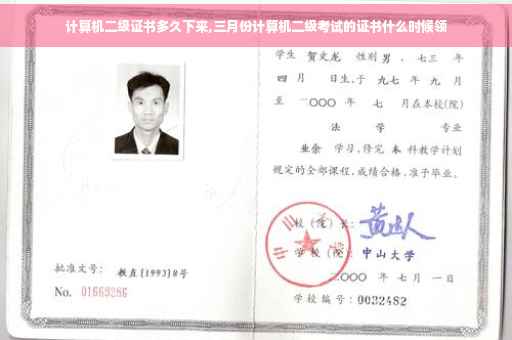 计算机二级证书多久下来,三月份计算机二级考试的证书什么时候领
学生 贺文龙 性别 男 、七三 年
四 月 日生,于 九七 年 九 月
至 二〇〇〇 年 七 月在本校(院)
法 学 专业
业余 学习,修完 本 科教学计划
规定的全部课程,成绩合格,准予毕业。
校(院)长:
学校(院): 中山大学
二〇〇〇 年 七月 一日
学校编号: 0032482
批准文号: 教直[1993]8号
No. 01669286